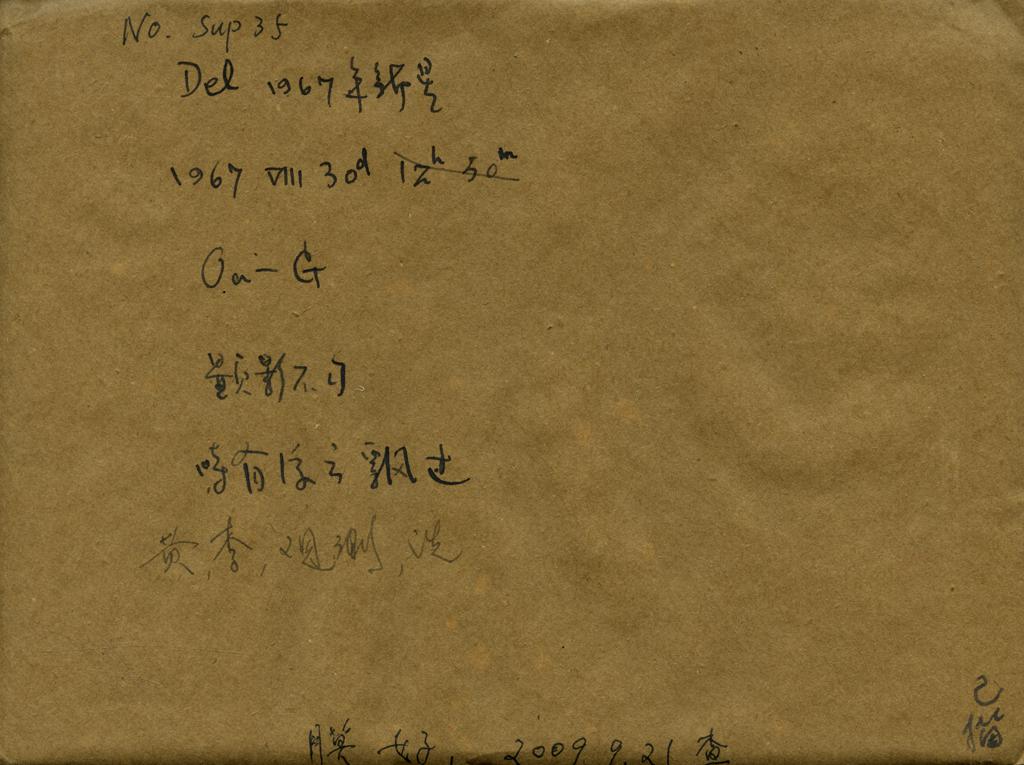 No. Sup 35
Del 1967年新星
1967 VIII 30d 12h 50m
Oa-G
量员影不匀
时有浮云飘过
黄,李,观测,洗
膜好, 2009.9.21查
已描